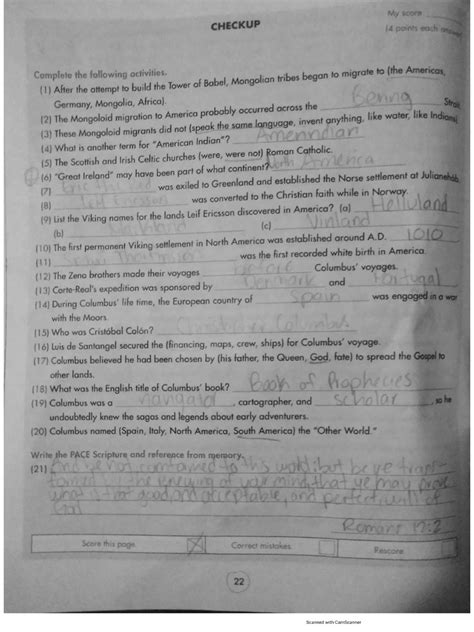 CHECKUP
My score
(4 points each answer)
Complete the following activities.
(1) After the attempt to build the Tower of Babel, Mongolian tribes began to migrate to (the Americas,
Germany, Mongolia, Africa).
(2) The Mongoloid migration to America probably occurred across the Bering Strait.
(3) These Mongoloid migrants did not (speak the same language, invent anything, like water, like Indians)
(4) What is another term for "American Indian"? Amerindian
(5) The Scottish and Irish Celtic churches (were, were not) Roman Catholic.
(6) "Great Ireland" may have been part of what continent? North America
(7) Eric the Red was exiled to Greenland and established the Norse settlement at Julianehåb
(8) Leif Ericsson was converted to the Christian faith while in Norway.
(9) List the Viking names for the lands Leif Ericsson discovered in America? (a) Helluland
(b) Markland (c) Vinland
(10) The first permanent Viking settlement in North America was established around A.D. 1010
(11) was the first recorded white birth in America.
(12) The Zeno brothers made their voyages before Columbus' voyages.
(13) Corte-Real's expedition was sponsored by Denmark and Portugal
(14) During Columbus' life time, the European country of Spain was engaged in a war
with the Moors.
(15) Who was Cristóbal Colón? Christopher Columbus
(16) Luis de Santangel secured the (financing, maps, crew, ships) for Columbus' voyage.
(17) Columbus believed he had been chosen by (his father, the Queen, God, fate) to spread the Gospel to
other lands.
(18) What was the English title of Columbus' book? Book of Prophecies
(19) Columbus was a navigator, cartographer, and scholar, so he
undoubtedly knew the sagas and legends about early adventurers.
(20) Columbus named (Spain, Italy, North America, South America) the "Other World."
Write the PACE Scripture and reference from memory.
(21) And be not conformed to this world: but be ye trans-
formed by the renewing of your mind, that ye may prove
what is that good, and acceptable, and perfect, will of
God
Romans 12:2
Score this page. Correct mistakes. Rescore.
22
Scanned with CamScanner